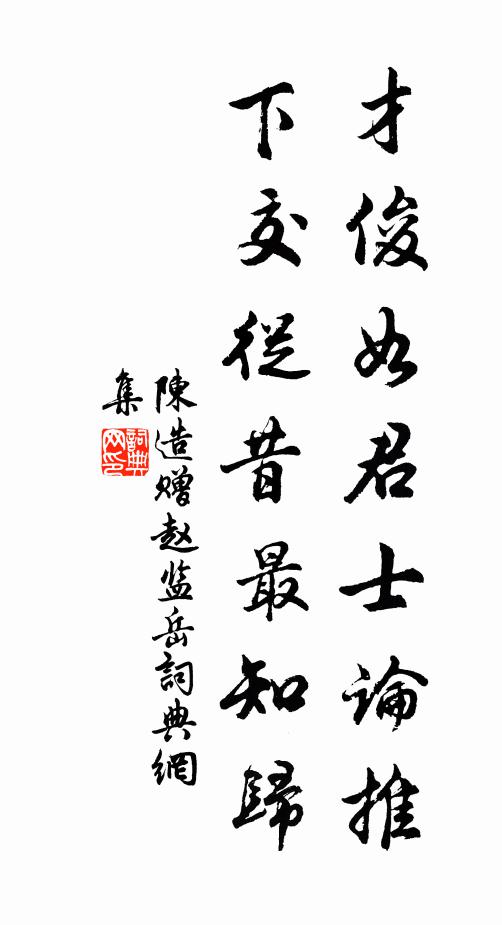 才俊如君士論推
下交從昔最知歸
陳造贈赵监岳詞典網
集
詞典网印